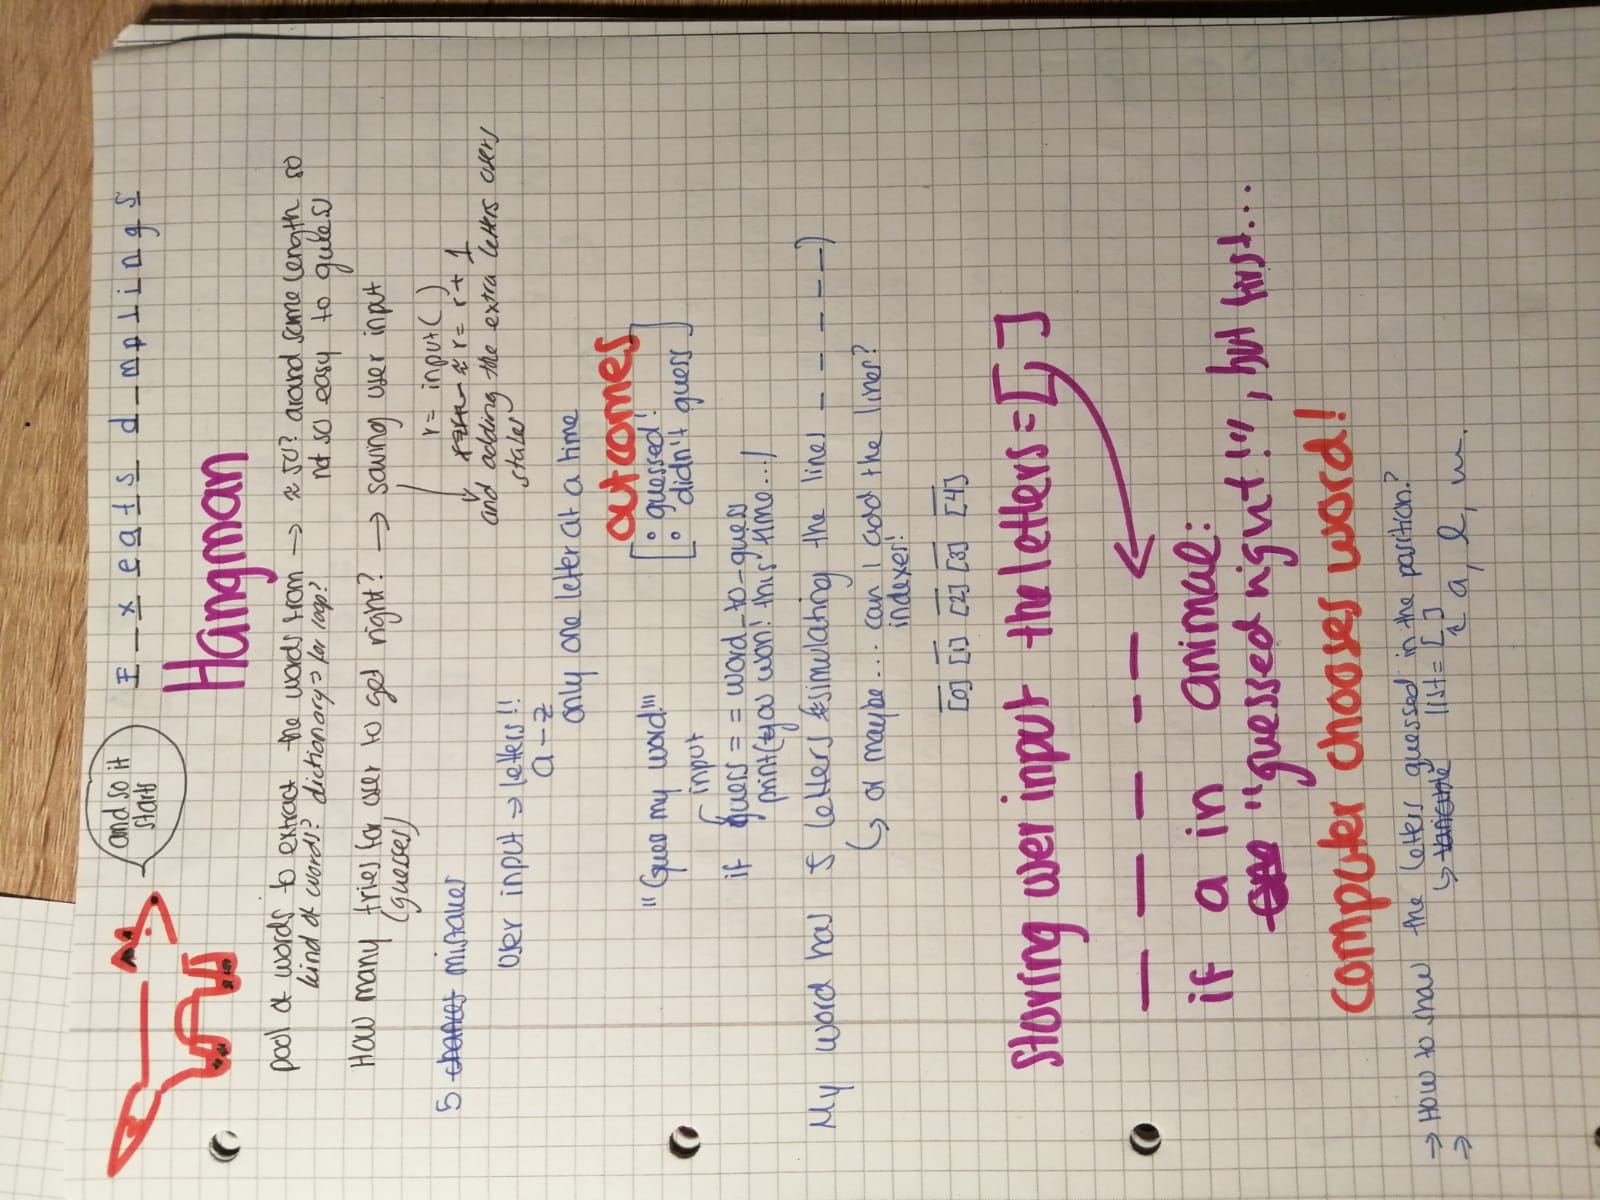 and so it
starts
F _ x e a t s d _ m p l i n g s
Hangman
pool of words to extract the words from → ≈ 50? around same length so
not so easy to guess)
kind of words? dictionary? for loop?
How many tries for user to get right? → saving user input
(guesses)
r = input( )
r = r + 1
and adding the extra letters users
states
5 chances mistakes
user input → letters!!
a – z
only one letter at a time
outcomes
: guessed!
: didn't guess
"Guess my word!"
input
if guess = word_to_guess
print(you won! this time...)
My word has 5 letters (simulating the lines _ _ _ _ _)
↳ or maybe... can I add the lines?
indexes!
[0] [1] [2] [3] [4]
storing user input the letters = [ ]
_ _ _ _ _
if a in animal:
"guessed right!", but first...
computer chooses word!
→ How to show the letters guessed in the position?
↳ variable list = [ ]
a, l, m.
→